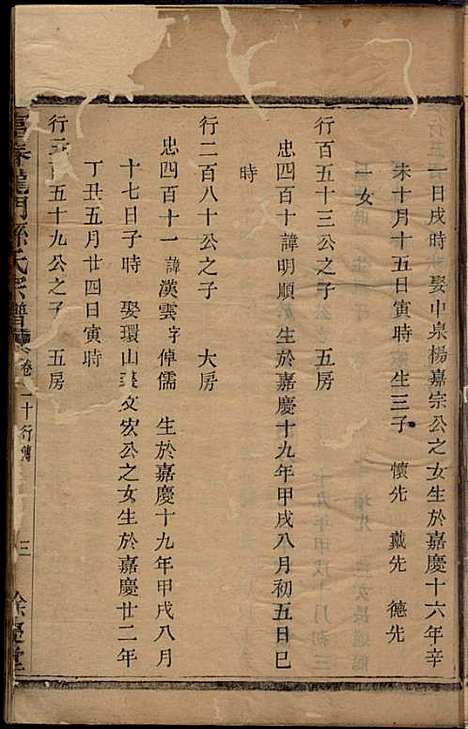 一日戌時 娶中泉楊嘉宗公之女生於嘉慶十六年辛
未十月十五日寅時 生三子 懷先 戴先 德先
一女
行百五十三公之子 五房
忠四百十諱明順 生於嘉慶十九年甲戌八月初五日巳
時
行二百八十公之子 大房
忠四百十一諱漢雲字倬儒 生於嘉慶十九年甲戌八月
十七日子時 娶環山裴文宏公之女生於嘉慶廿二年
丁丑五月廿四日寅時
行 五十九公之子 五房
春龍門孫氏宗譜 卷二十行傳 三 餘慶堂